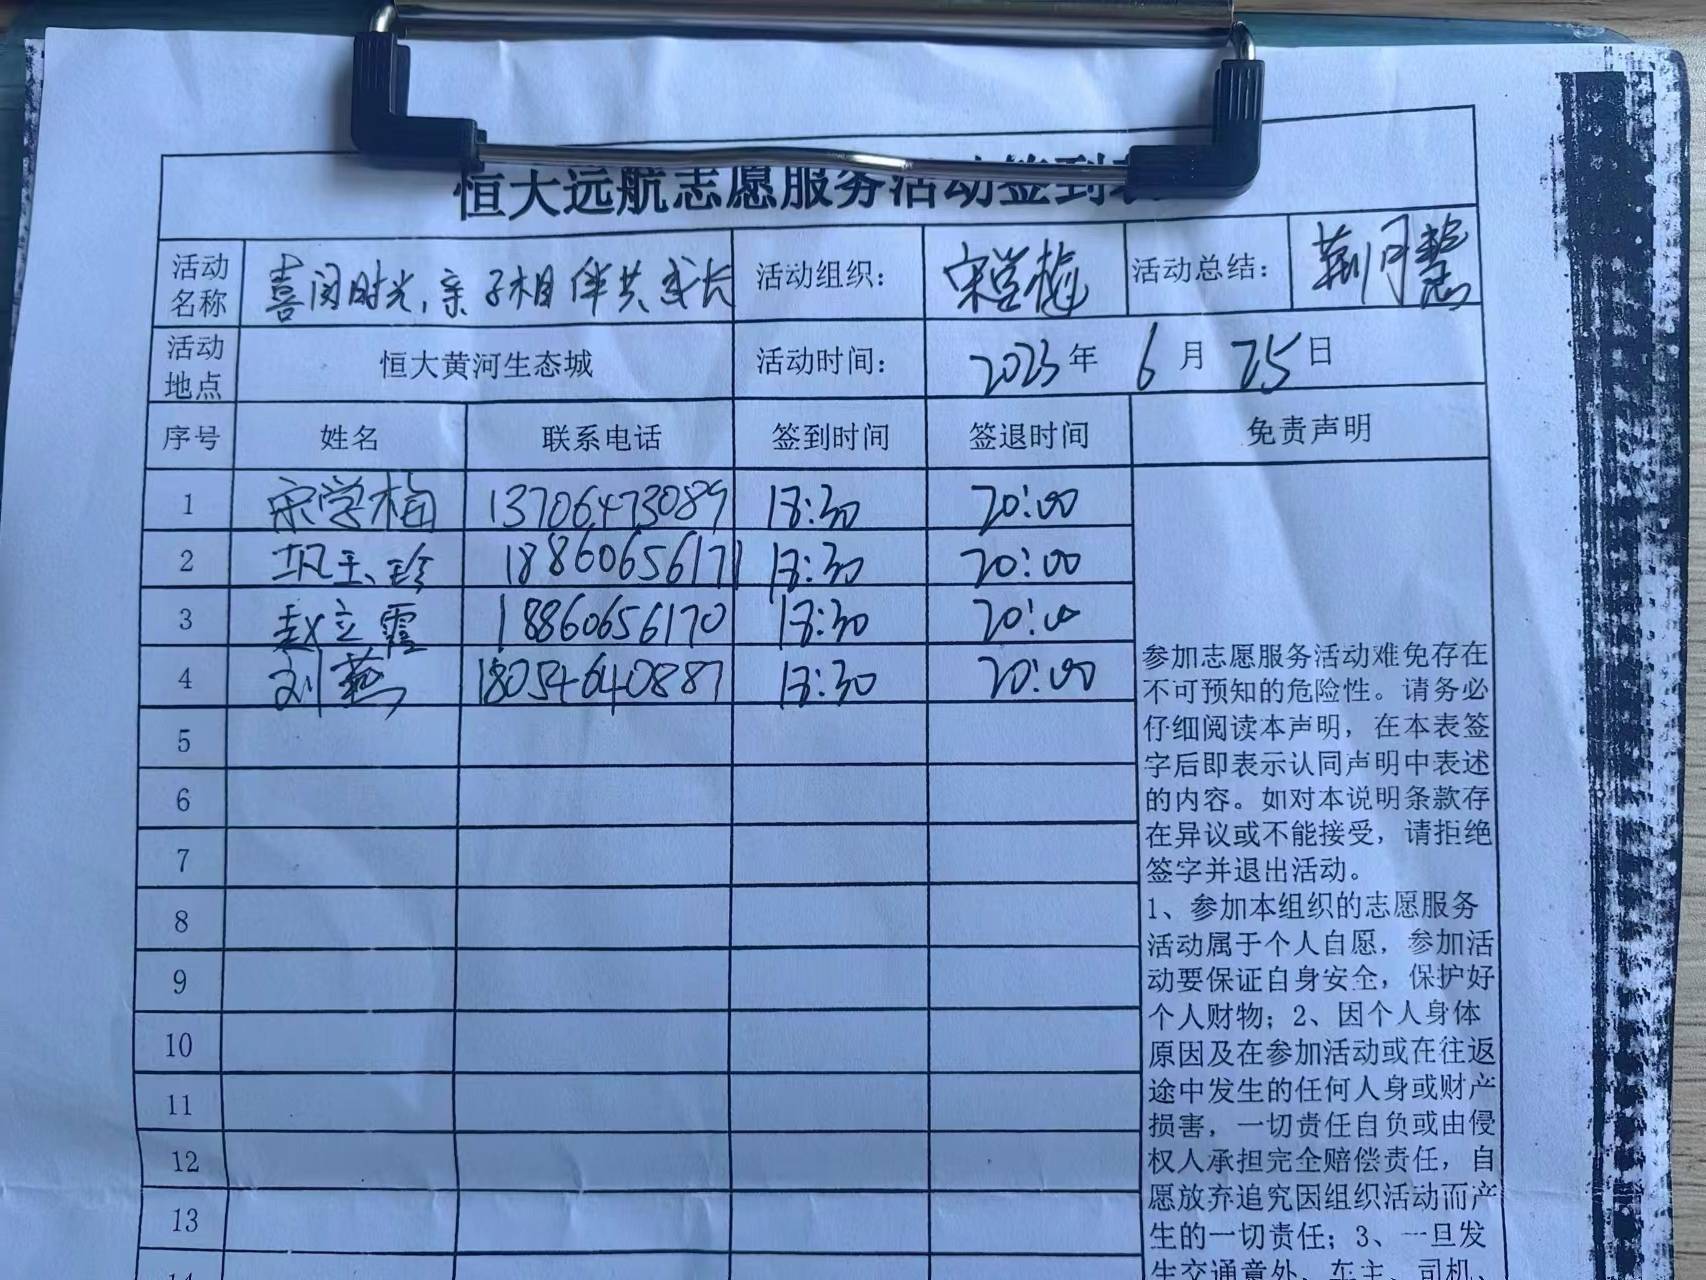 恒大远航志愿服务活动签到表
活动名称 喜阅时光,亲子相伴共成长 活动组织: 宋学梅 活动总结: 荆月慧
活动地点 恒大黄河生态城 活动时间: 2023年 6月 25日
序号 姓名 联系电话 签到时间 签退时间 免责声明
1 宋学梅 13706473089 18:30 20:00
2 巩玉珍 18860656171 18:30 20:00
3 赵立霞 18860656170 18:30 20:00
4 刘燕 18054640887 18:30 20:00
5
6
7
8
9
10
11
12
13
14
参加志愿服务活动难免存在
不可预知的危险性。请务必
仔细阅读本声明，在本表签
字后即表示认同声明中表述
的内容。如对本说明条款存
在异议或不能接受，请拒绝
签字并退出活动。
1、参加本组织的志愿服务
活动属于个人自愿，参加活
动要保证自身安全，保护好
个人财物；2、因个人身体
原因及在参加活动或在往返
途中发生的任何人身或财产
损害，一切责任自负或由侵
权人承担完全赔偿责任，自
愿放弃追究因组织活动而产
生的一切责任；3、一旦发
生交通意外，车主、司机、